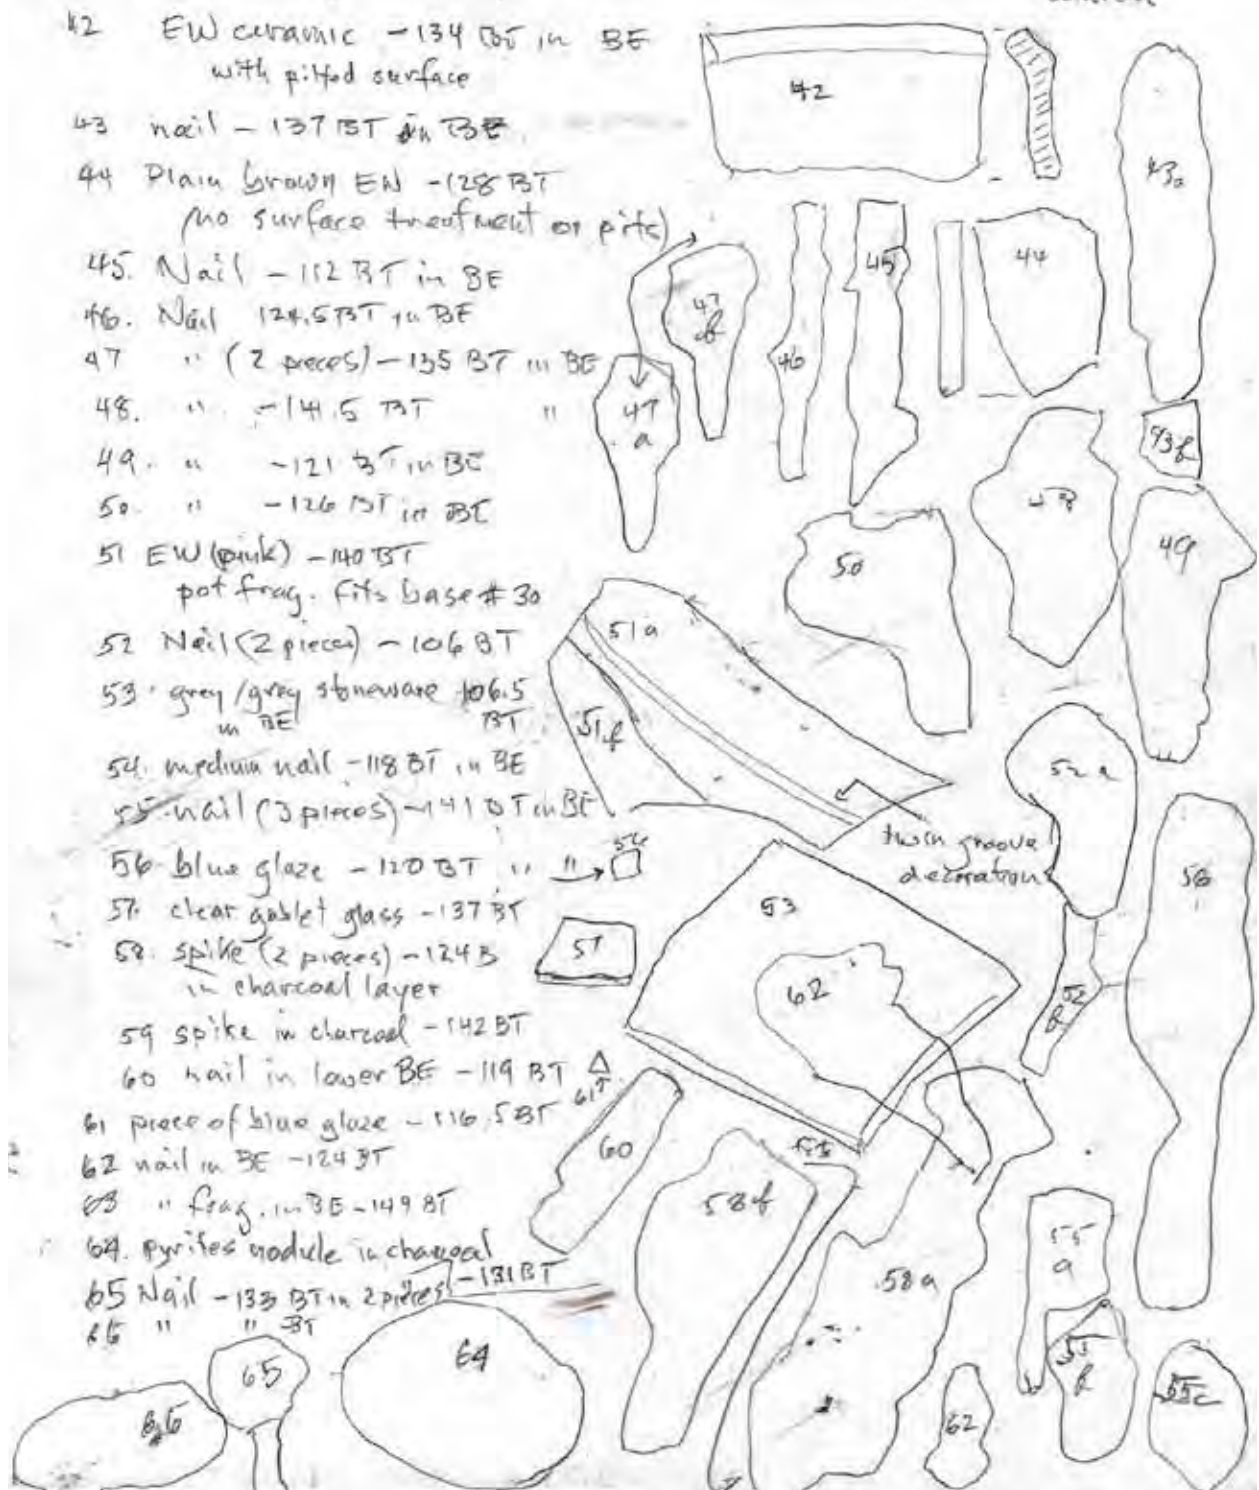 42 EW ceramic - 134 BT in BE
with pitted surface
43 nail - 137 BT in BE
44 Plain brown EW - 128 BT
(no surface treatment or pits)
45. Nail - 112 BT in BE
46. Nail 124.5 BT in BE
47 " (2 pieces) - 135 BT in BE
48. " - 141.5 BT "
49. " - 121 BT in BE
50. " - 126 BT in BE
51 EW (pink) - 140 BT
pot frag. fits base # 30
52 Nail (2 pieces) - 106 BT
53. grey/grey stoneware 106.5
in BE BT
54. medium nail - 118 BT in BE
55. nail (3 pieces) - 141 BT in BE
56 blue glaze - 120 BT " "
57. clear goblet glass - 137 BT
58. spike (2 pieces) - 124 B
in charcoal layer
59 spike in charcoal - 142 BT
60 nail in lower BE - 119 BT
61 piece of blue glaze - 116.5 BT
62 nail in BE - 124 BT
63 " frag. in BE - 149 BT
64. pyrites nodule in charcoal
- 131 BT
65 Nail - 133 BT in 2 pieces
66 " " BT
42
43a
47
b
46
45
44
47
a
43b
48
49
50
51a
51b
52a
twin groove
decoration
56
57
53
62
52
b
61
60
fits
58b
58a
55
a
55
b
55c
62
64
65
66